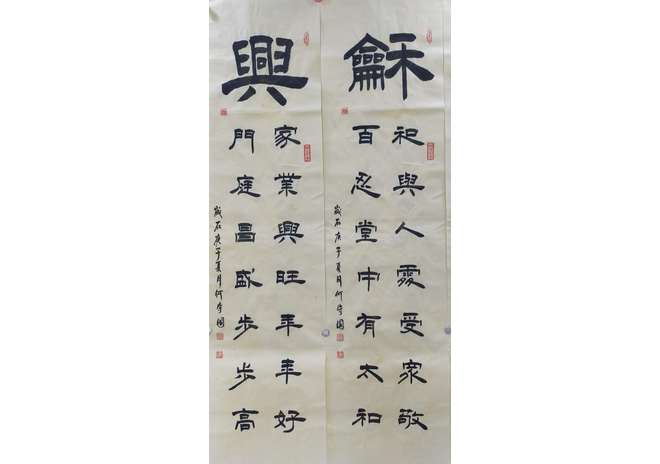 龢
祀與人處受眾敬
百忍堂中有太和
歲在庚子夏月何國
興
家業興旺年年好
門庭昌盛步步高
歲在庚子夏月何國